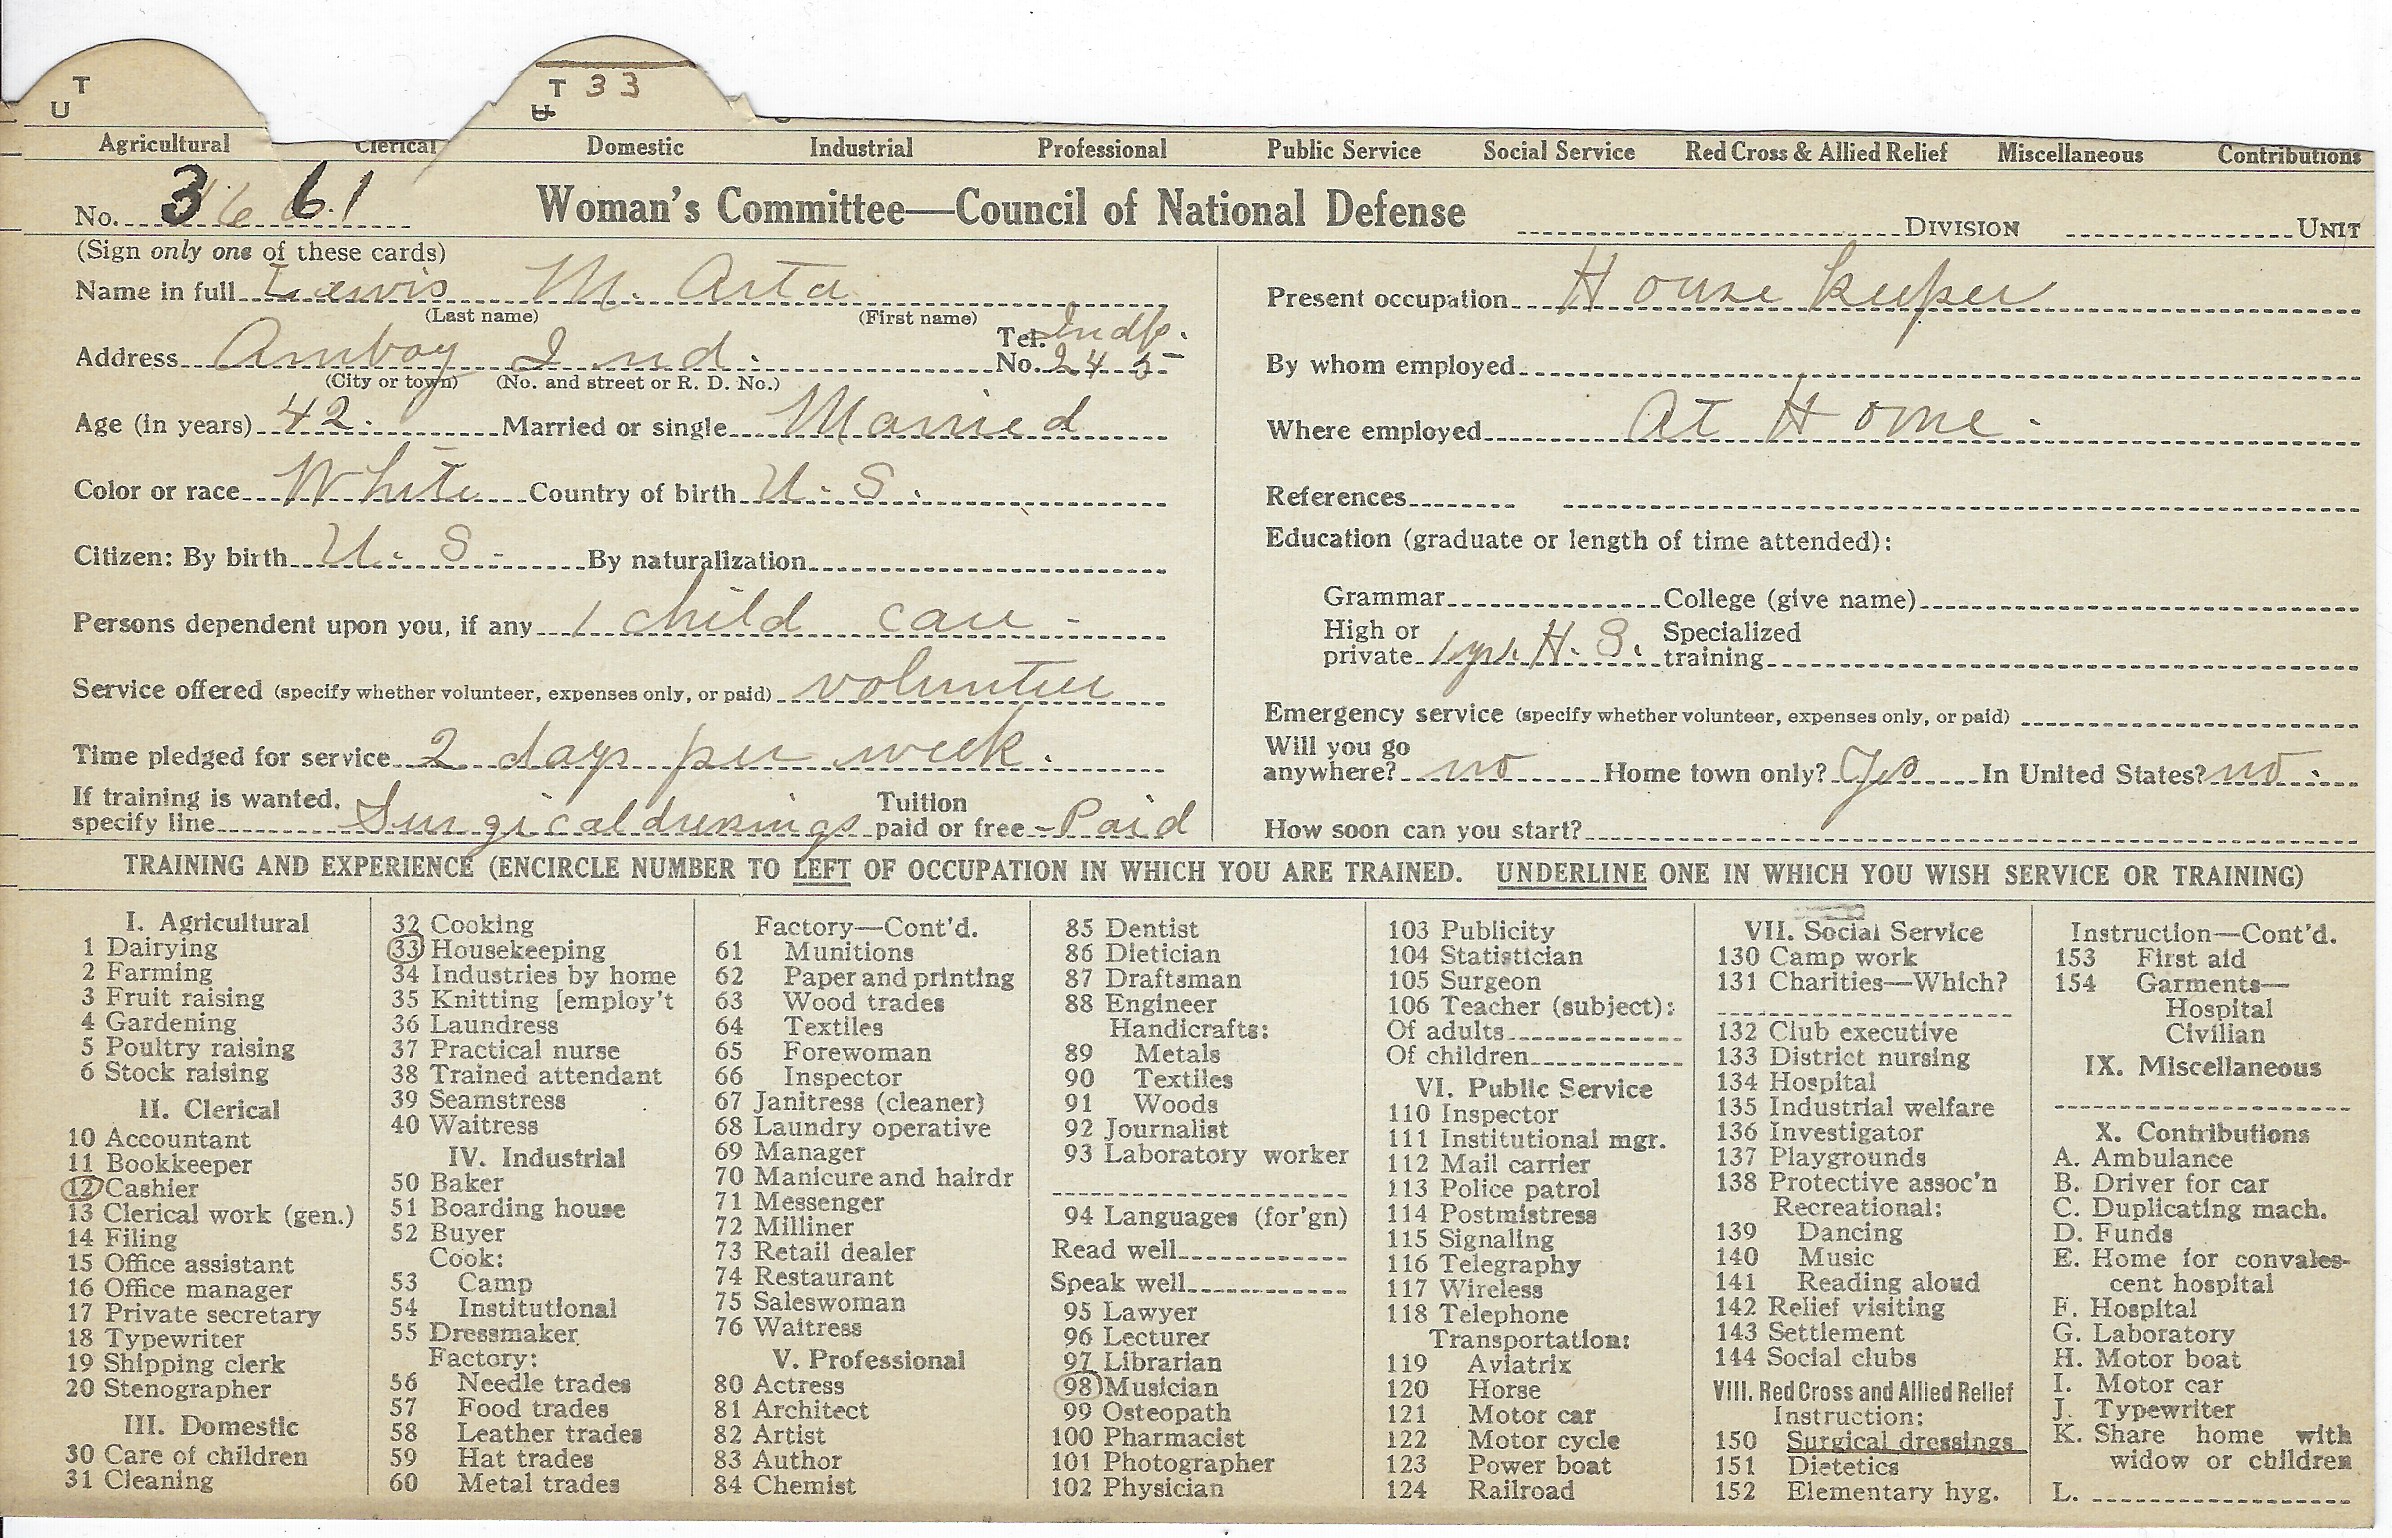 T
U
T 33
U
Agricultural Clerical Domestic Industrial Professional Public Service Social Service Red Cross & Allied Relief Miscellaneous Contributions
No. 3 61 Woman's Committee—Council of National Defense DIVISION UNIT
(Sign only one of these cards)
Name in full Lewis M. Arta
(Last name) (First name)
Address Amboy Ind. Tel. No. Indp. 245
(City or town) (No. and street or R. D. No.)
Age (in years) 42. Married or single Married
Color or race White Country of birth U. S.
Citizen: By birth U. S. By naturalization
Persons dependent upon you, if any 1 child care
Service offered (specify whether volunteer, expenses only, or paid) volunteer
Time pledged for service 2 days per week.
If training is wanted, specify line Surgical dressings Tuition paid or free Paid
Present occupation House keeper
By whom employed
Where employed At Home.
References
Education (graduate or length of time attended):
Grammar College (give name)
High or private 1 yr. H. S. Specialized training
Emergency service (specify whether volunteer, expenses only, or paid)
Will you go anywhere? no Home town only? Yes In United States? no.
How soon can you start?
TRAINING AND EXPERIENCE (ENCIRCLE NUMBER TO LEFT OF OCCUPATION IN WHICH YOU ARE TRAINED. UNDERLINE ONE IN WHICH YOU WISH SERVICE OR TRAINING)
I. Agricultural
1 Dairying
2 Farming
3 Fruit raising
4 Gardening
5 Poultry raising
6 Stock raising
II. Clerical
10 Accountant
11 Bookkeeper
12 Cashier
13 Clerical work (gen.)
14 Filing
15 Office assistant
16 Office manager
17 Private secretary
18 Typewriter
19 Shipping clerk
20 Stenographer
III. Domestic
30 Care of children
31 Cleaning
32 Cooking
33 Housekeeping
34 Industries by home
35 Knitting [employ't
36 Laundress
37 Practical nurse
38 Trained attendant
39 Seamstress
40 Waitress
IV. Industrial
50 Baker
51 Boarding house
52 Buyer
Cook:
53 Camp
54 Institutional
55 Dressmaker
Factory:
56 Needle trades
57 Food trades
58 Leather trades
59 Hat trades
60 Metal trades
Factory—Cont'd.
61 Munitions
62 Paper and printing
63 Wood trades
64 Textiles
65 Forewoman
66 Inspector
67 Janitress (cleaner)
68 Laundry operative
69 Manager
70 Manicure and hairdr
71 Messenger
72 Milliner
73 Retail dealer
74 Restaurant
75 Saleswoman
76 Waitress
V. Professional
80 Actress
81 Architect
82 Artist
83 Author
84 Chemist
85 Dentist
86 Dietician
87 Draftsman
88 Engineer
Handicrafts:
89 Metals
90 Textiles
91 Woods
92 Journalist
93 Laboratory worker
94 Languages (for'gn)
Read well
Speak well
95 Lawyer
96 Lecturer
97 Librarian
98 Musician
99 Osteopath
100 Pharmacist
101 Photographer
102 Physician
103 Publicity
104 Statistician
105 Surgeon
106 Teacher (subject):
Of adults
Of children
VI. Public Service
110 Inspector
111 Institutional mgr.
112 Mail carrier
113 Police patrol
114 Postmistress
115 Signaling
116 Telegraphy
117 Wireless
118 Telephone
Transportation:
119 Aviatrix
120 Horse
121 Motor car
122 Motor cycle
123 Power boat
124 Railroad
VII. Social Service
130 Camp work
131 Charities—Which?
132 Club executive
133 District nursing
134 Hospital
135 Industrial welfare
136 Investigator
137 Playgrounds
138 Protective assoc'n
Recreational:
139 Dancing
140 Music
141 Reading aloud
142 Relief visiting
143 Settlement
144 Social clubs
VIII. Red Cross and Allied Relief
Instruction:
150 Surgical dressings
151 Dietetics
152 Elementary hyg.
Instruction—Cont'd.
153 First aid
154 Garments—
Hospital
Civilian
IX. Miscellaneous
X. Contributions
A. Ambulance
B. Driver for car
C. Duplicating mach.
D. Funds
E. Home for convales-
cent hospital
F. Hospital
G. Laboratory
H. Motor boat
I. Motor car
J. Typewriter
K. Share home with
widow or children
L.